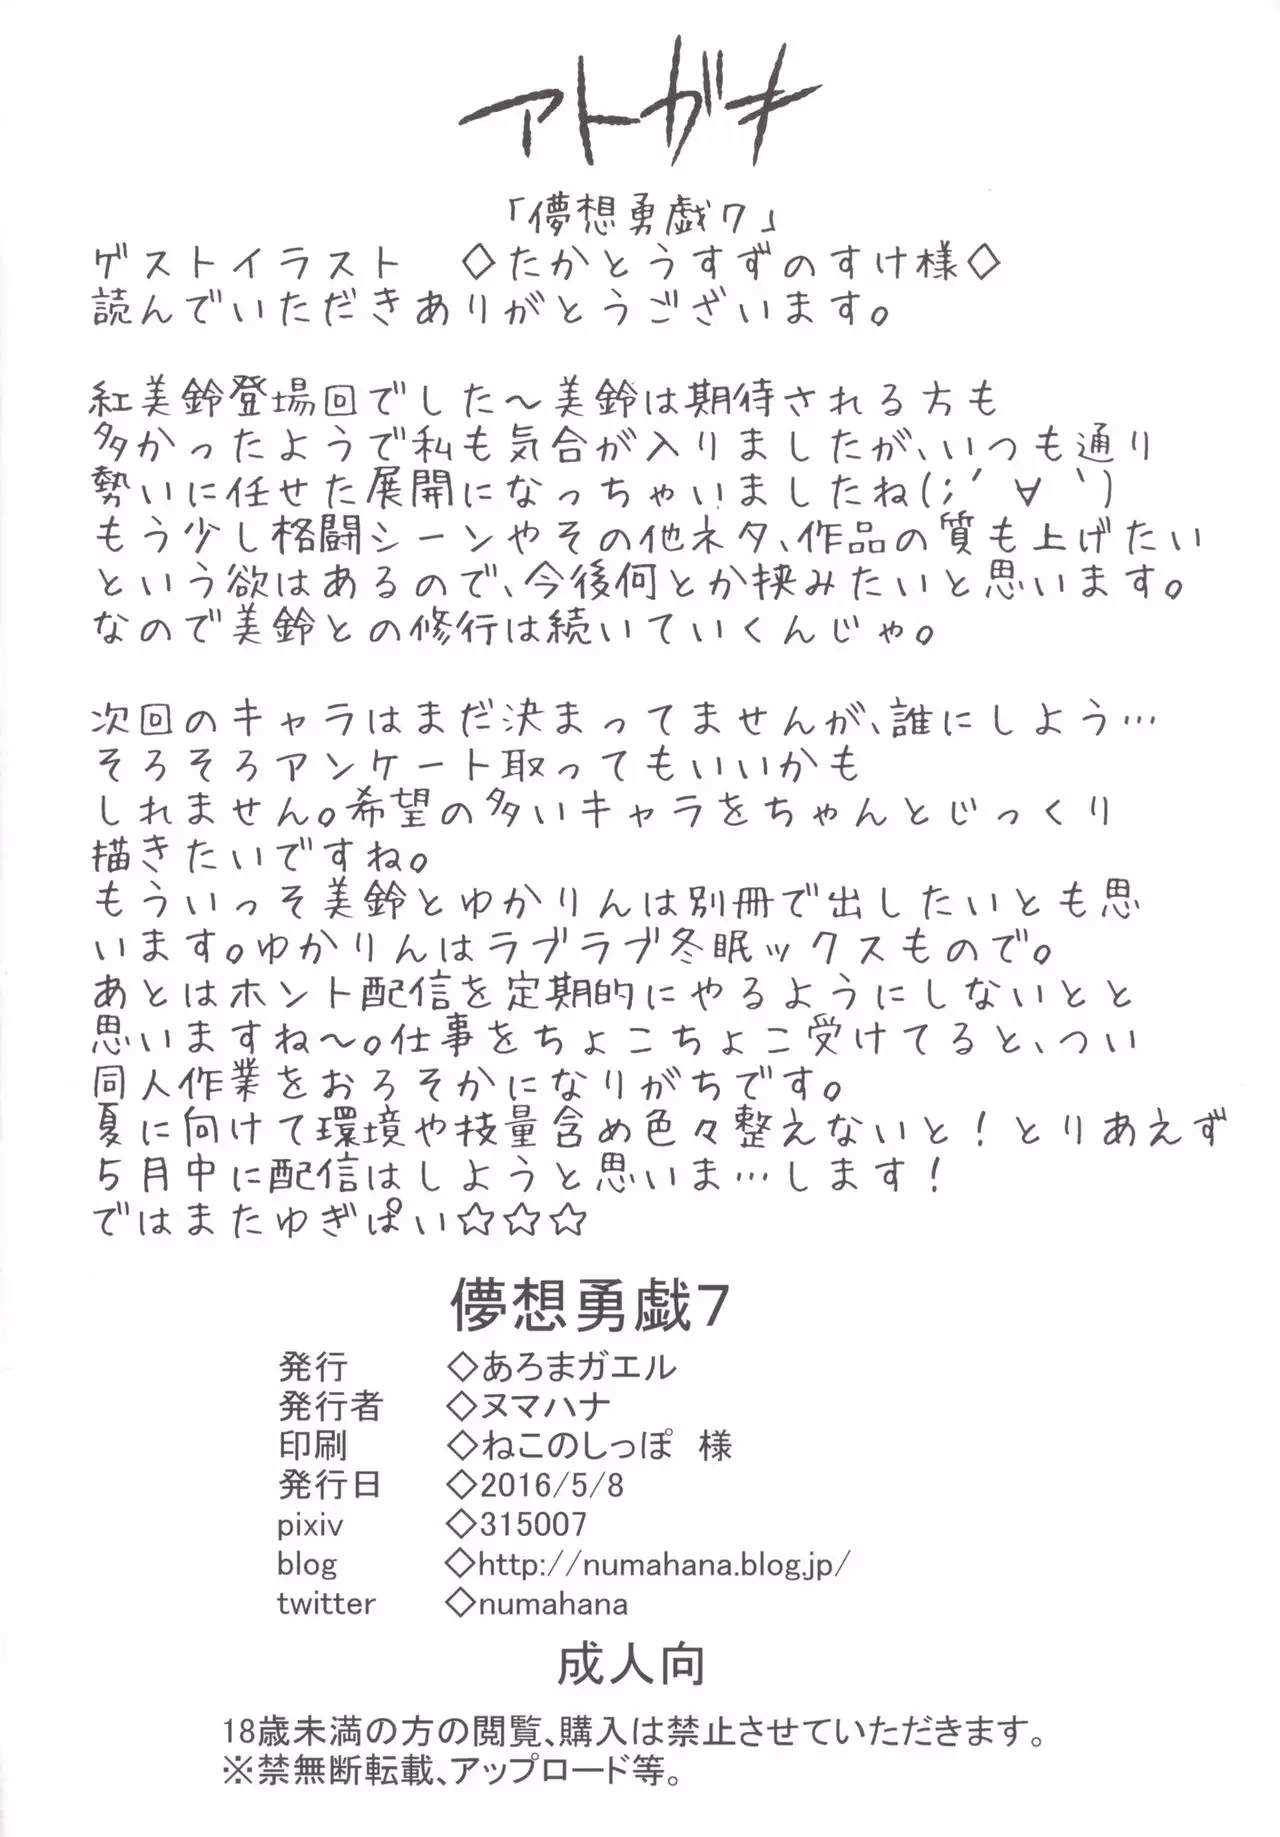 アトガキ
「儚想勇戯7」
ゲストイラスト　◇たかとうすずのすけ様◇
読んでいただきありがとうございます。
紅美鈴登場回でした～美鈴は期待される方も
多かったようで私も気合が入りましたが、いつも通り
勢いに任せた展開になっちゃいましたね(;´∀｀)
もう少し格闘シーンやその他ネタ、作品の質も上げたい
という欲はあるので、今後何とか挟みたいと思います。
なので美鈴との修行は続いていくんじゃ。
次回のキャラはまだ決まってませんが、誰にしよう…
そろそろアンケート取ってもいいかも
しれません。希望の多いキャラをちゃんとじっくり
描きたいですね。
もういっそ美鈴とゆかりんは別冊で出したいとも思
います。ゆかりんはラブラブ冬眠ックスもので。
あとはホント配信を定期的にやるようにしないとと
思いますね～。仕事をちょこちょこ受けてると、つい
同人作業をおろそかになりがちです。
夏に向けて環境や技量含め色々整えないと！とりあえず
5月中に配信はしようと思いま…します！
ではまたゆぎぱい☆☆☆
儚想勇戯7
発行　◇あろまガエル
発行者　◇ヌマハナ
印刷　◇ねこのしっぽ　様
発行日　◇2016/5/8
pixiv　◇315007
blog　◇http://numahana.blog.jp/
twitter　◇numahana
成人向
18歳未満の方の閲覧、購入は禁止させていただきます。
※禁無断転載、アップロード等。